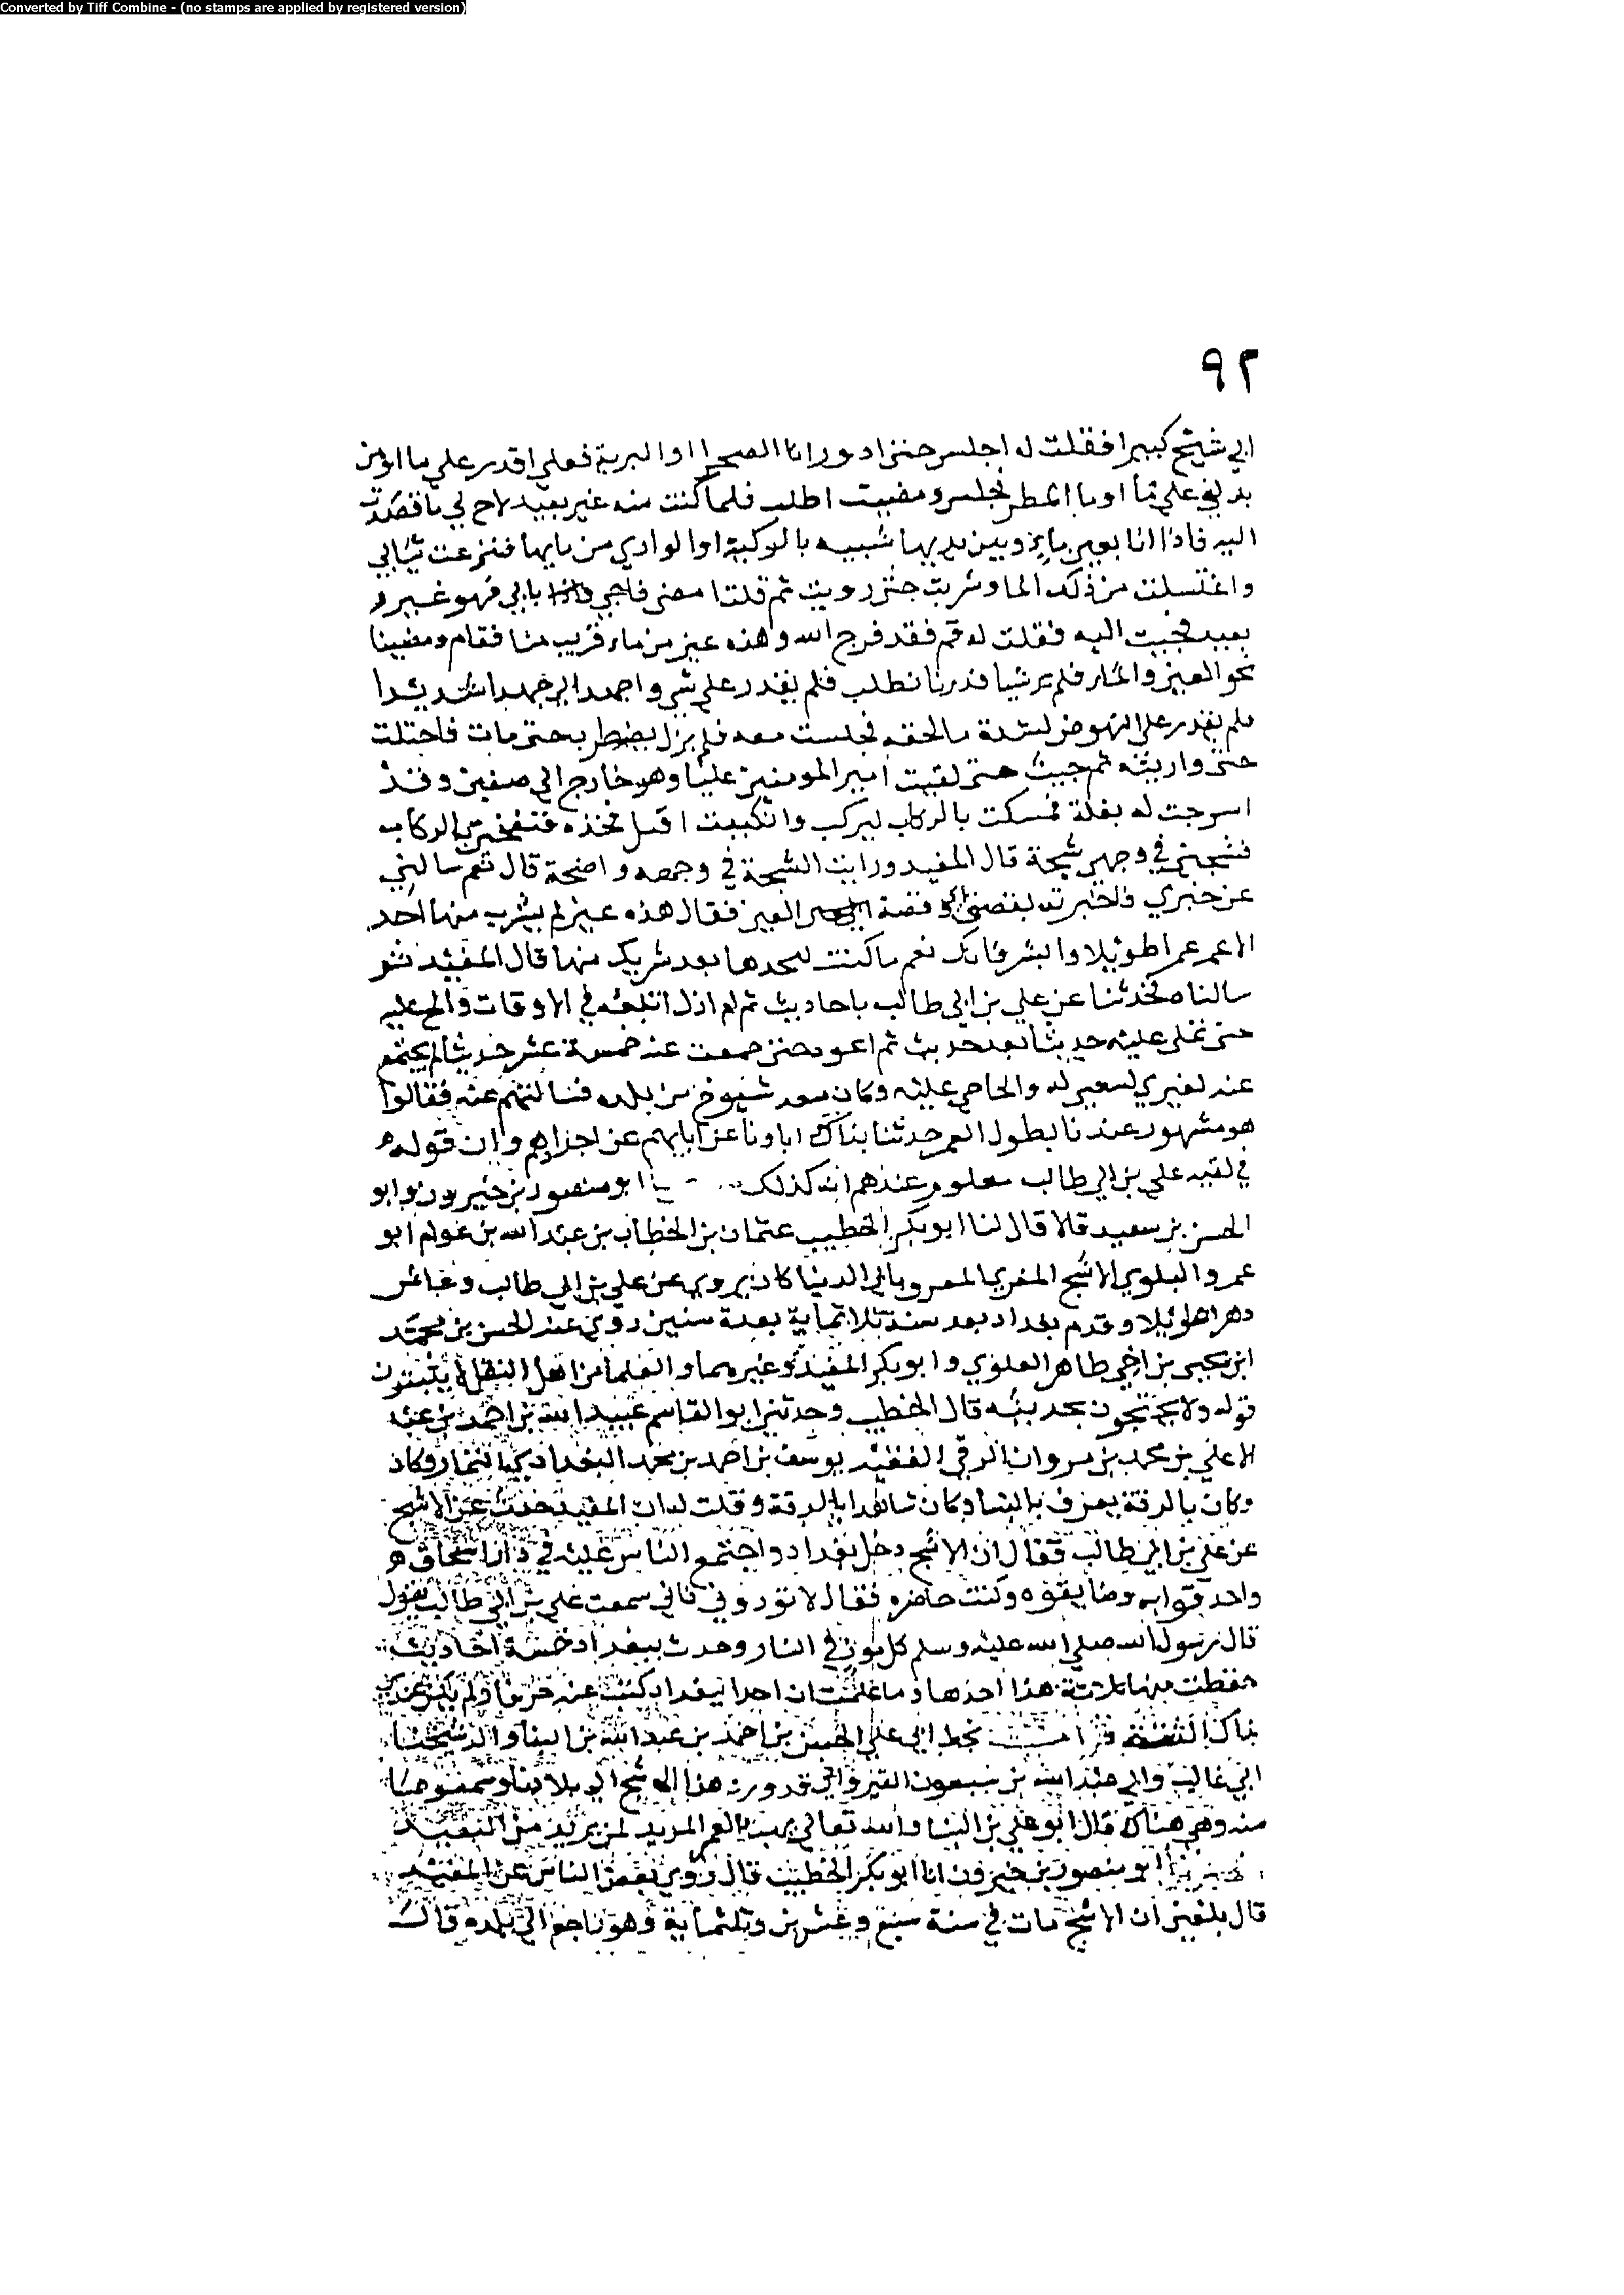 Converted by Tiff Combine - (no stamps are applied by registered version)
٩٢
ابي شيخ كبير افقلت له اجلس حتى ادور انا الصحرا او البرية فعلي اقدر على ما او من
يدلني على ما او ما المطر فجلس ومضيت اطلب فلما كنت منه غير بعيد لاح لي ما فقصدت
اليه فاذا انا بعين ما وبين يديها شبيه بالركية او الوادي من مايها فنزعت ثيابي
واغتسلت من ذلك الما وشربت حتى رويت ثم قلت امضي فاجي بابي فهو غير
بعيد فجيت اليه فقلت له قم فقد فرج الله وهذه عين من ماء قريب منا فقام ومضينا
نحو العين والما فلم نر شيا فدرنا نطلب فلم يقدر على شي واجهد ابي جهدا شديدا
فلم يقدر على النهوض لشدة ما لحقه فجلست معه فلم يزل يضطرب حتى مات فاحتلت
حتى واريته ثم جيت حتى لقيت امير المومنين عليا وهو خارج الى صفين وقد
اسرجت له بغلة فمسكت بالركاب ليركب وانكببت اقبل فخذه فنفحني الركاب
فشجني في وجهي شجة قال المفيد ورايت الشجة في وجهه واضحة قال ثم سالني
عن خبري فاخبرته بقصتي وقصة ابي العين فقال هذه عين لم يشرب منها احد
الا عمر عمرا طويلا وابشر فانك نعم ما كنت لتجدها بعد شربك منها قال المفيد ثم
سالناه فحدثنا عن علي بن ابي طالب باحاديث ثم لم ازل اتبعه في الاوقات والح عليه
حتى يملي علي حديثا بعد حديث ثم اعود حتى جمعت عنه خمسة عشر حديثا لم يجتمع
عنه لغيري لسعيي له والحاحي عليه وكان معه شيوخ من بلده فسالتهم عنه فقالوا
هو مشهور عندنا بطول العمر حدثنا بذاك اباونا عن ابايهم عن اجدادهم وان قوله
في لقيه علي بن ابي طالب معلوم عندهم انه كذلك ابو منصور بن خيرون وابو
الحسن بن سعيد قالا قال لنا ابو بكر الخطيب عثمان بن الخطاب بن عبد الله بن عوام ابو
عمرو البلوي الاشج المغربي المعروف بابي الدنيا كان يروي عن علي بن ابي طالب وعاش
دهرا طويلا وقدم بغداد بعد سنة ثلاثماية بعدة سنين روى عنه الحسن بن محمد
ابن يحيى بن اخي طاهر العلوي وابو بكر المفيد وغيرهما والعلما من اهل النقل لا يثبتون
قوله ولا يحتجون بحديثه قال الخطيب وحدثني ابو القاسم عبيد الله بن احمد بن عبد
الاعلى بن محمد بن مروان الرقي الفقيه يوسف بن احمد بن محمد البغدادي
وكان بالرقة يعرف وكان شاهدا بالرقة وقلت له ان المفيد حدث عن الاشج
عن علي بن ابي طالب فقال ان الاشج دخل بغداد واجتمع الناس عليه في دار اسحاق
واحدقوا به وضايقوه وكنت حاضره فقال لا توذوني فاني سمعت علي بن ابي طالب يقول
قال رسول الله صلى الله عليه وسلم كل موذ في النار وحدث ببغداد خمسة احاديث
حفظت منها ثلاثة هذا احدها وما علمت ان احدا ببغداد كتب عنه حرفا ولم يكن عندي
بذاك الثقة قرات بخط ابي علي الحسن بن احمد بن عبد الله بن البنا والد شيخنا
ابي غالب وابي عبد الله بن القيرواني قدورد هذا الشيخ الى بلادنا وسمعنا
منه وهي هناك قال ابو علي بن البنا والله تعالى يهب العمر المديد لمن يريد من العبيد
ابو منصور بن خيرون انا ابو بكر الخطيب قال روى بعض الناس عن المفيد
قال بلغني ان الاشج مات في سنة سبع وعشرين وثلثماية وهو راجع الى بلده قال